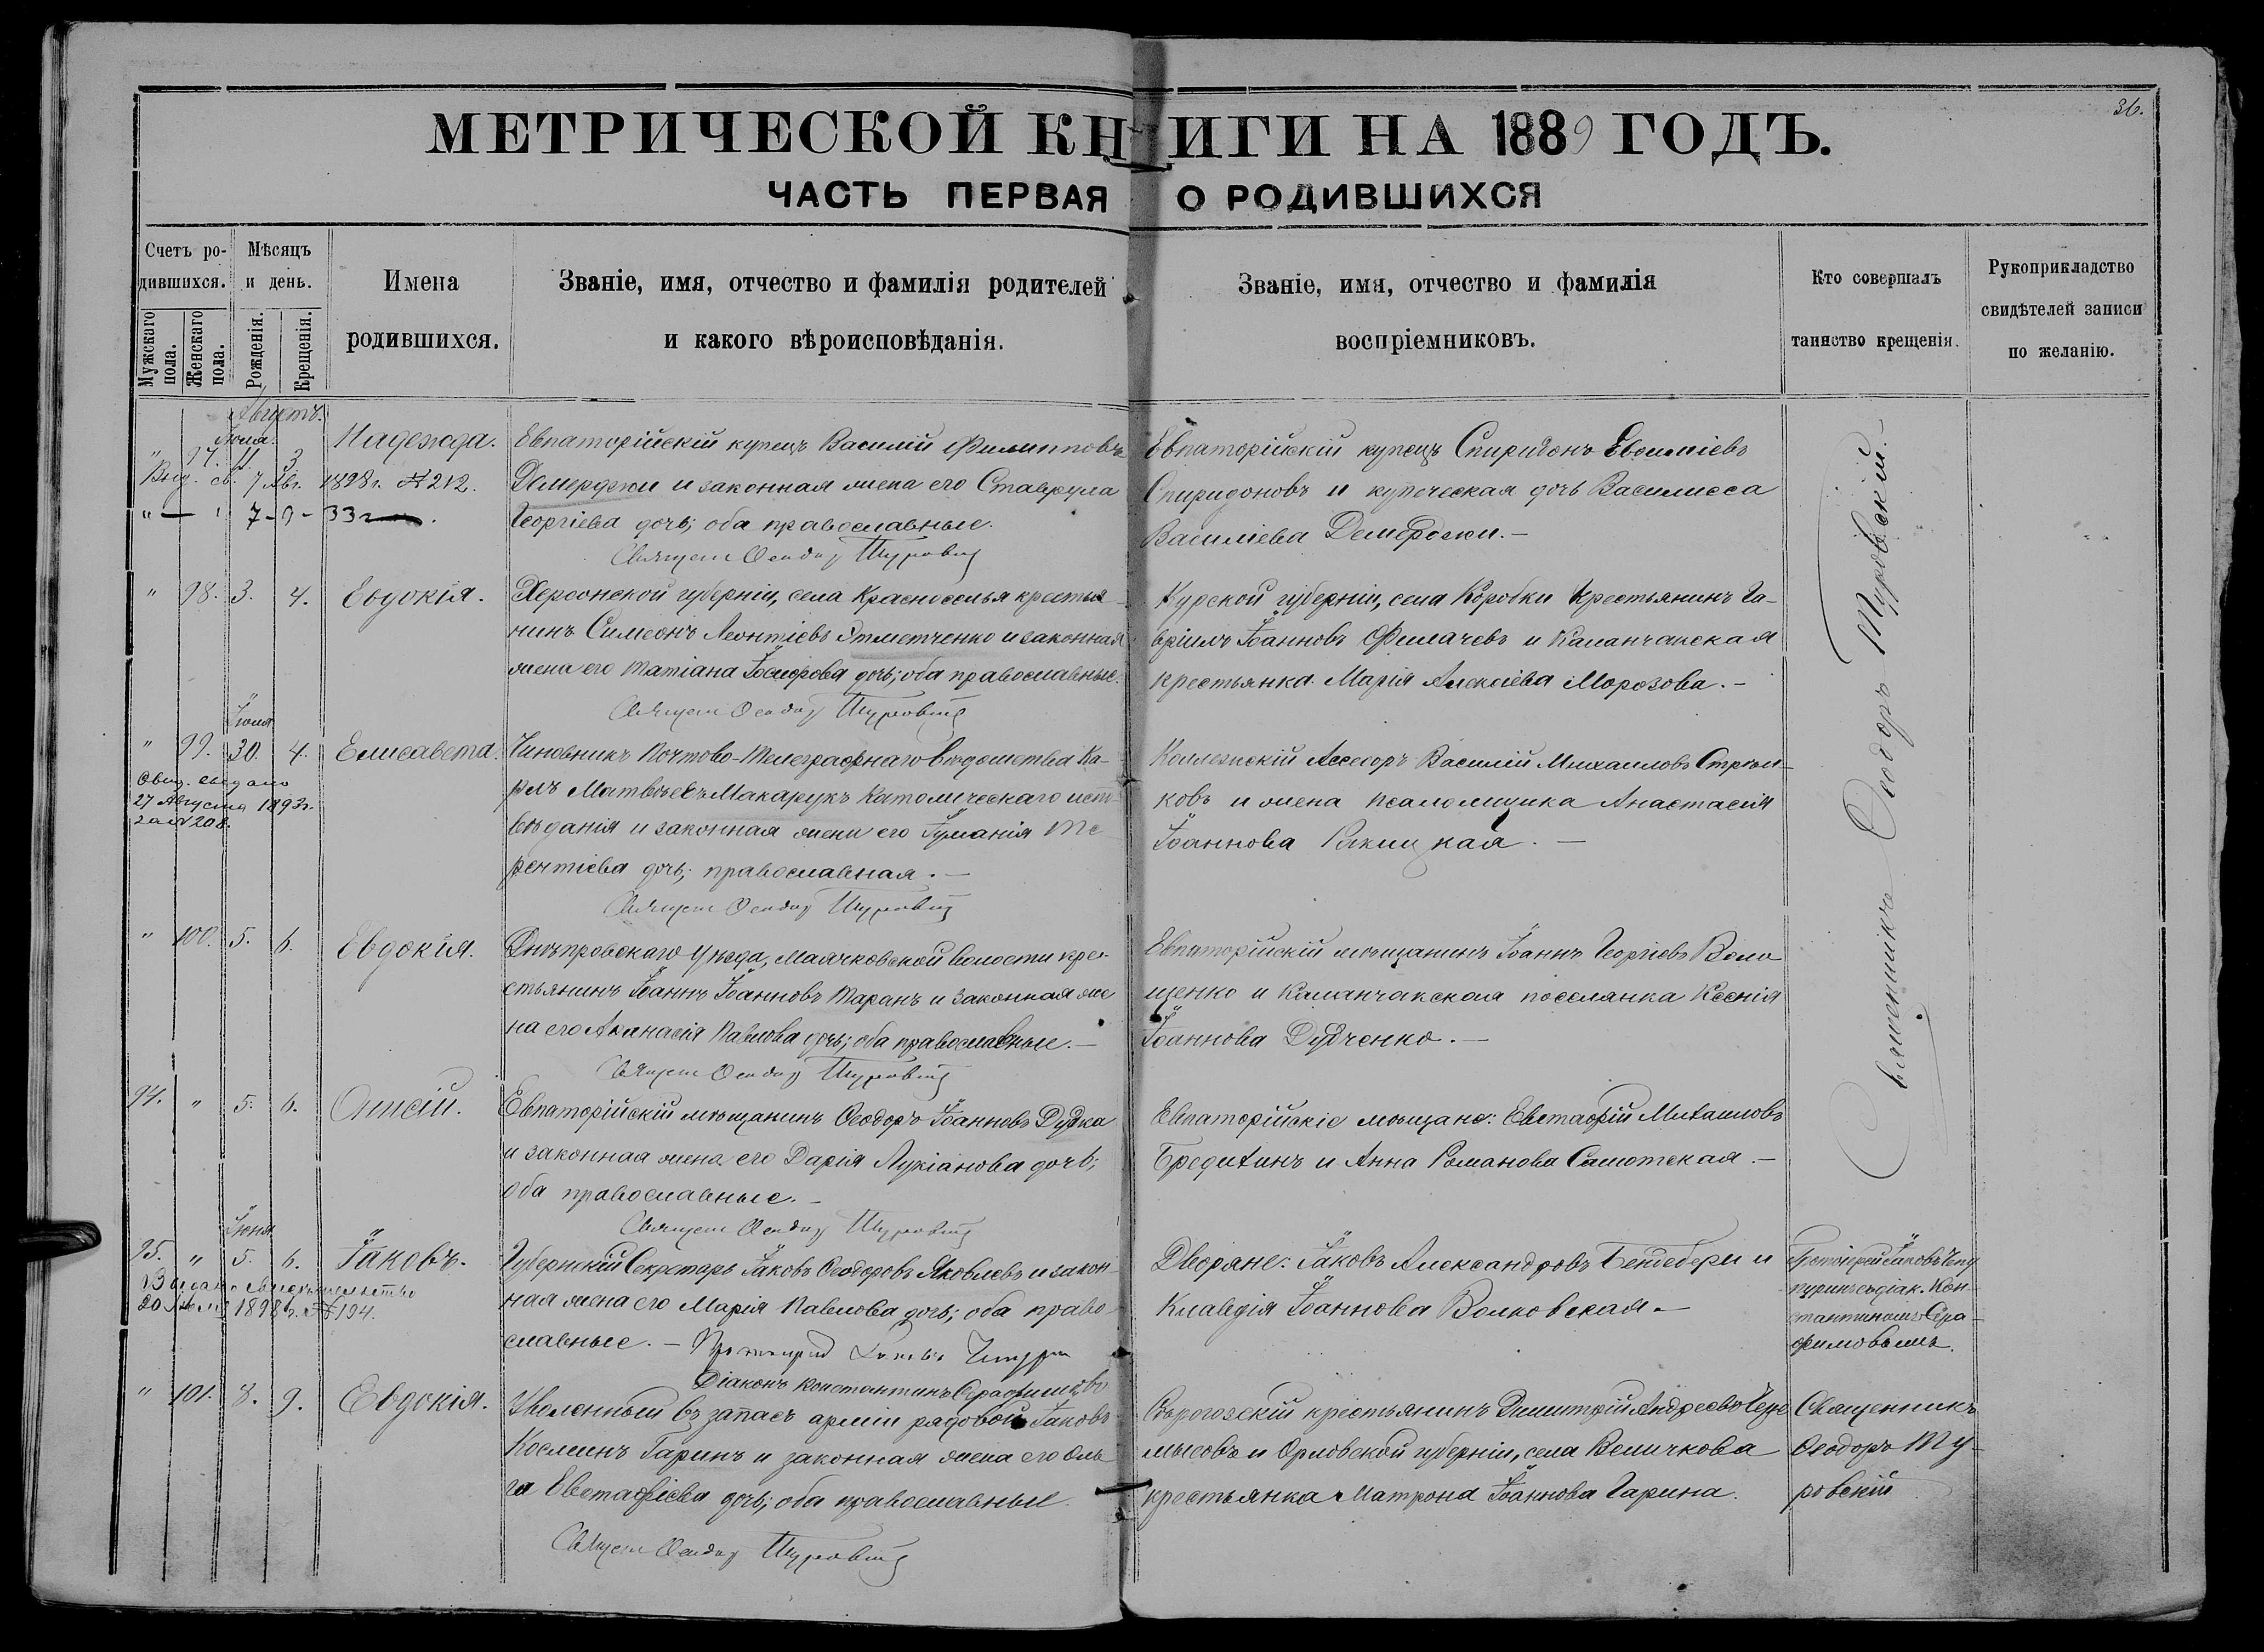 36.
МЕТРИЧЕСКОЙ КНИГИ НА 1889 ГОДЪ.
ЧАСТЬ ПЕРВАЯ О РОДИВШИХСЯ
Счетъ ро-
дившихся.
Мужскаго пола.
Женскаго пола.
Мѣсяцъ
и день.
Рожденія.
Крещенія.
Имена
родившихся.
Званіе, имя, отчество и фамилія родителей
и какого вѣроисповѣданія.
Званіе, имя, отчество и фамилія
воспріемниковъ.
Кто совершалъ
таинство крещенія.
Рукоприкладство
свидѣтелей записи
по желанію.
Августъ.
Іюля.
" 97. 11. 3 Надежда.
Выд. св. 7 Авг. 1898 г. № 212.
" — " 7 - 9 - 33
Евпаторійскій купецъ Василій Филипповъ
Демерджи и законная жена его Ставрула
Георгіева дочь; оба православные.
Священ Ѳеодор Туровскій
Евпаторійскій купецъ Спиридонъ Евѳиміевъ
Спиридоновъ и купеческая дочь Василисса
Василіева Демерджи. —
Священникъ Ѳеодоръ Туровскій. —
" 98. 3. 4. Евдокія.
Херсонской губерніи, села Красноселья крестья-
нинъ Симеонъ Леонтіевъ Ятметченко и законная
жена его Татіана Іосифова дочь; оба православные.
Священ Ѳеодор Туровскій
Курской губерніи, села Коробки крестьянинъ Га-
вріилъ Іоанновъ Филачевъ и Каланчакская
крестьянка Марія Алексіева Морозова. —
Іюля
" 99. 30. 4. Елисавета.
Свид. выдано
27 Августа 1893 г.
за № 208.
Чиновникъ Почтово-Телеграфнаго вѣдомства Ка-
рлъ Матвѣевъ Макарукъ Католическаго испо-
вѣданія и законная жена его Іуліанія Те-
рентіева дочь; православная. —
Священ Ѳеодор Туровскій
Коллежскій Ассесоръ Василій Михаиловъ Стрѣль-
ковъ и жена псаломщика Анастасія
Іоаннова Ракицкая. —
" 100. 5. 6. Евдокія.
Днѣпровскаго уѣзда, Маячковской волости кре-
стьянинъ Іоаннъ Іоанновъ Таранъ и законная же-
на его Аѳанасія Павлова дочь; оба православные. —
Священ Ѳеодор Туровскій
Евпаторійскій мѣщанинъ Іоаннъ Георгіевъ Воло-
щенко и Каланчакская поселянка Ксенія
Іоаннова Дудченко. —
94. " 5. 6. Онисій.
Евпаторійскій мѣщанинъ Ѳеодоръ Іоанновъ Дудка
и законная жена его Дарія Лукіанова дочь;
оба православные. —
Священ Ѳеодор Туровскій
Евпаторійскіе мѣщане: Евстафій Михаиловъ
Бредихинъ и Анна Романова Самотская. —
Іюня
95. " 5. 6. Іаковъ.
Выдано свидѣтельство
1898 г. № 194.
Губернскій Секретарь Іаковъ Ѳеодоровъ Яковлевъ и закон-
ная жена его Марія Павлова дочь; оба право-
славные. — Протоіерей Іаковъ Чепурин
Діаконъ Константинъ Серафимовъ
Дворяне: Іаковъ Александровъ Бендебери и
Клавдія Іоаннова Волковская. —
Протіерей Іаковъ Чепу-
ринъ съ діак. Кон-
стантиномъ Сера-
фимовымъ.
" 101. 8. 9. Евдокія.
Уволенный въ запасъ арміи рядовой Іаковъ
Косминъ Гаринъ и законная жена его Оль-
га Евстафіева дочь; оба православные
Священ Ѳеодор Туровскій
Сѣрогозскій крестьянинъ Димитрій Андреевъ
мысовъ и Орловской губерніи, села Величкова
крестьянка Матрона Іоаннова Гарина.
Священникъ
Ѳеодоръ Ту-
ровскій